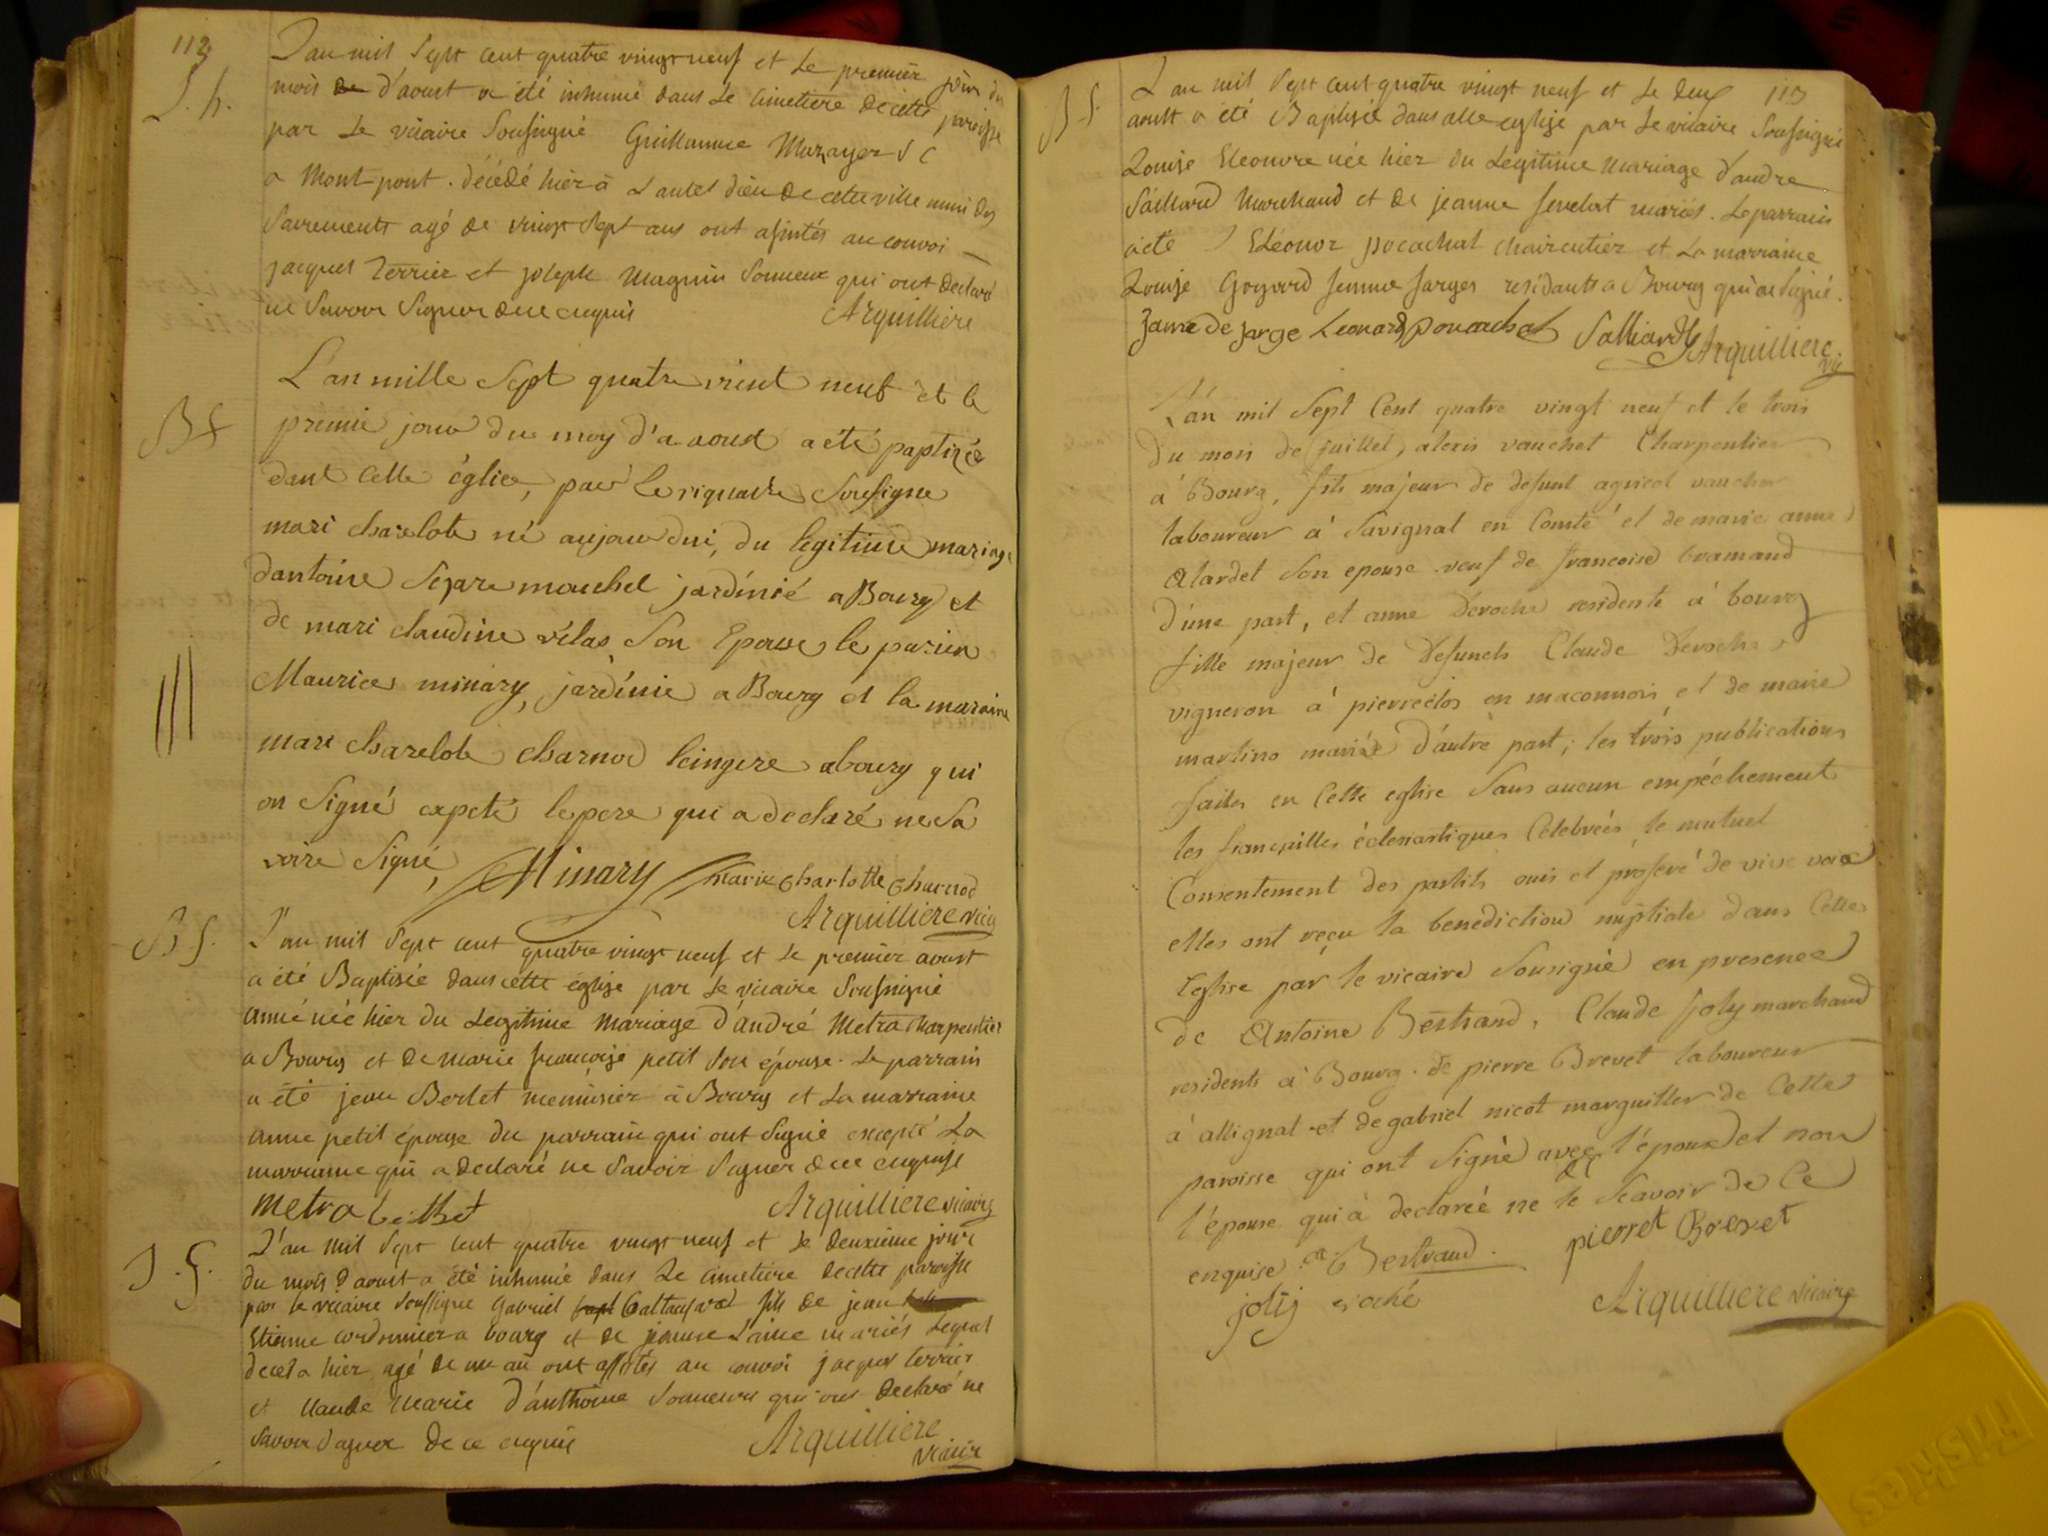 112
L'an mil Sept cent quatre vingt neuf et Le premier jour du
mois d'aoust a été inhumé dans Le Cimetiere de cette paroisse
S. h.
par Le vicaire Soussigné Guillaume
a Montpont. décédé hier à L'autel dieu de cette ville muni des
Sacrements agé de vingt Sept ans ont assistés au convoi
jacques Terrier et joseph Magnin Sonneux qui ont declaré
ne Savoir Signer de ce enquis Arquilliere
L'an mille Sept quatre vient neuf et le
B f
premie jour du moy d'a aoust a été paptizée
dant Cette églice, par le Sousigne
mari charlote né aujourdui, du legitime mariage
dantoine mouchel jardinié a Bourg et
de mari claudine vélas Son Epouse le parien
Maurice minary, jardinie a Bourg et la maraine
mari charelote charnod leingere abourg qui
on Signé expeté le pere qui a declaré ne Sa
voire Signé, Minary marie charlotte Charnod
Arquilliere vicaire
B f.
L'an mil Sept cent quatre vingt neuf et Le premier aoust
a été Baptisée dans cette église par Le vicaire Soussigné
Anne née hier du Legitime Mariage d'andré Metra Charpentier
a Bourg et de marie françoise petit Son épouse. Le parrain
a été jean Berlet menuisier à Bourg et La marraine
anne petit épouse du parrain qui ont Signé excepté La
marraine qui a declaré ne Savoir Signer de ce enquise
metra Arquilliere vicaire
L'an mil Sept cent quatre vingt neuf et Le deuxieme jour
S. G.
du mois d'aoust a été inhumé dans Le Cimetiere de cette paroisse
par le vicaire Soussigné Gabriel fils de jean
Etienne cordonnier a bourg et de jeanne Laine mariés Lequel
deceda hier agé de un an ont assistés au convoi jacques terrier
et Claude Marie d'anthoine Sonneurs qui ont declaré ne
Savoir Signer de ce enquis Arquilliere
vicaire
113
L'an mil Sept cent quatre vingt neuf et Le deux
B f.
aoust a été Baptisée dans cette eglise par Le vicaire Soussigné
Louise Eleonore née hier du Legitime mariage d'andre
Saillard Marchand et de jeanne mariés. Le parrain
a été Eléonor pocachat chaircutier et La marraine
Louise Goyard femme farges residants a Bourg qui ont Signé.
Arquilliere
vic
L'an mil Sept Cent quatre vingt neuf et le trois
du mois de juillet, alexis vauchet Charpentier
à Bourg, fils majeur de defunt agricol vaucher
laboureur à Savignat en Comté et de marie anne
alardet Son epouse veuf de francoise bramand
d'une part, et anne Deroche residente à bourg
fille majeur de defunts Claude Deroche
vigneron à pierreclos en maconnois, et de marie
martino mariée d'autre part; les trois publications
faites en Cette eglise Sans aucun empéchement
les fiancailles éclesiastiques Celebreés, le mutuel
Consentement des partils ouis et proferé de vive voix
elles ont reçu la benediction nuptiale dans Cette
Eglise par le vicaire Sousigné en presence
de Antoine Bertrand, Claude joly marchand
residents à Bourg. de pierre Brevet laboureur
à attignat et de gabriel nicot marguiller de Cette
paroisse qui ont Signé avec l'époux et non
l'épouse qui à declareé ne le Scavoir de Ce
enquise Bertrand. pierret Brevet
jolij
Arquilliere vicaire
Ruskies